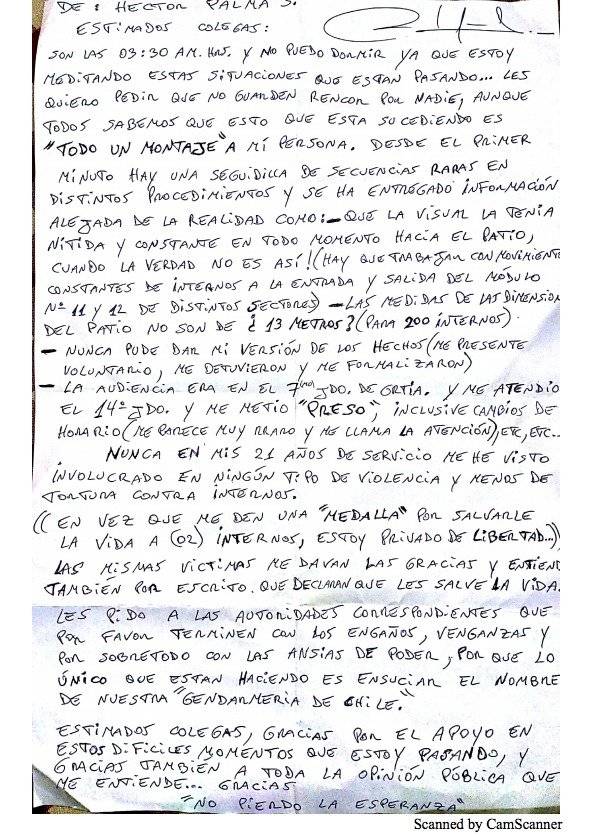 DE: HECTOR PALMA S.
ESTIMADOS COLEGAS:
SON LAS 03:30 AM. HRS. Y NO PUEDO DORMIR YA QUE ESTOY
MEDITANDO ESTAS SITUACIONES QUE ESTAN PASANDO... LES
QUIERO PEDIR QUE NO GUARDEN RENCOR POR NADIE, AUNQUE
TODOS SABEMOS QUE ESTO QUE ESTA SUCEDIENDO ES
"TODO UN MONTAJE" A MI PERSONA. DESDE EL PRIMER
MINUTO HAY UNA SEGUIDILLA DE SECUENCIAS RARAS EN
DISTINTOS PROCEDIMIENTOS Y SE HA ENTREGADO INFORMACIÓN
ALEJADA DE LA REALIDAD COMO: - QUE LA VISUAL LA TENIA
NÍTIDA Y CONSTANTE EN TODO MOMENTO HACIA EL PATIO,
CUANDO LA VERDAD NO ES ASÍ! (HAY QUE TRABAJAR CON MOVIMIENT
CONSTANTES DE INTERNOS A LA ENTRADA Y SALIDA DEL MÓDULO
Nº 11 Y 12 DE DISTINTOS SECTORES) - LAS MEDIDAS DE LAS DIMENSION
DEL PATIO NO SON DE ¿13 METROS? (PARA 200 INTERNOS).
- NUNCA PUDE DAR MI VERSIÓN DE LOS HECHOS (ME PRESENTE
VOLUNTARIO, ME DETUVIERON Y ME FORMALIZARON)
- LA AUDIENCIA ERA EN EL 7mo JDO. DE GRTIA. Y ME ATENDIO
EL 14º JDO. Y ME METIO "PRESO", INCLUSIVE CAMBIOS DE
HORARIO (ME PARECE MUY RRARO Y ME LLAMA LA ATENCIÓN), ETC, ETC..
NUNCA EN MIS 21 AÑOS DE SERVICIO ME HE VISTO
INVOLUCRADO EN NINGÚN TIPO DE VIOLENCIA Y MENOS DE
TORTURA CONTRA INTERNOS.
((EN VEZ QUE ME DEN UNA "MEDALLA" POR SALVARLE
LA VIDA A (02) INTERNOS, ESTOY PRIVADO DE LIBERTAD...))
LAS MISMAS VICTIMAS ME DAVAN LAS GRACIAS Y ENTIEN
TAMBIÉN POR ESCRITO. QUE DECLARAN QUE LES SALVE LA VIDA.
LES PIDO A LAS AUTORIDADES CORRESPONDIENTES QUE
POR FAVOR TERMINEN CON LOS ENGAÑOS, VENGANZAS Y
POR SOBRETODO CON LAS ANSIAS DE PODER, POR QUE LO
ÚNICO QUE ESTAN HACIENDO ES ENSUCIAR EL NOMBRE
DE NUESTRA "GENDARMERIA DE CHILE."
ESTIMADOS COLEGAS, GRACIAS POR EL APOYO EN
ESTOS DIFICILES MOMENTOS QUE ESTOY PASANDO, Y
GRACIAS TAMBIEN A TODA LA OPINIÓN PÚBLICA QUE
ME ENTIENDE... GRACIAS
"NO PIERDO LA ESPERANZA"
Scanned by CamScanner